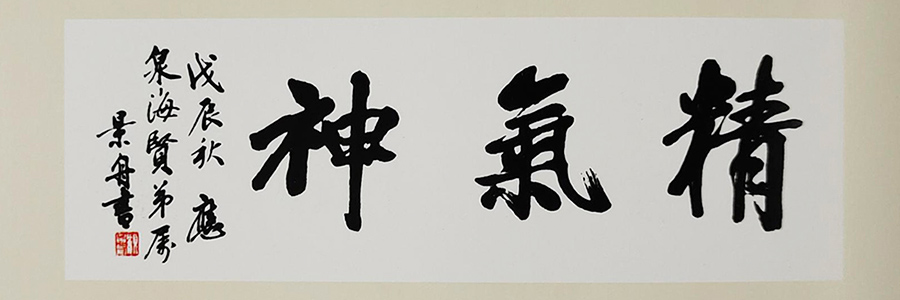 精氣神
戊辰秋 應
泉海賢弟属
景舟書